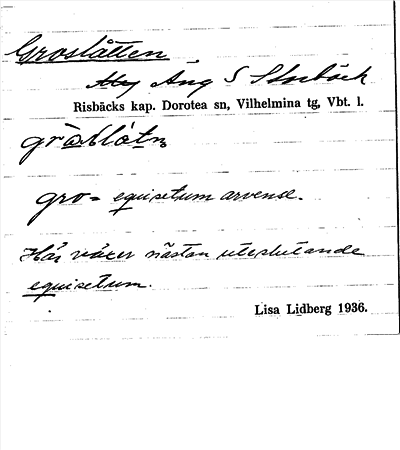 Groslåtten
Äng S Storbäck
Risbäcks kap. Dorotea sn, Vilhelmina tg, Vbt. l.
gro= equisetum arvense.
Här växer nästan uteslutande
equisetum.
Lisa Lidberg 1936.